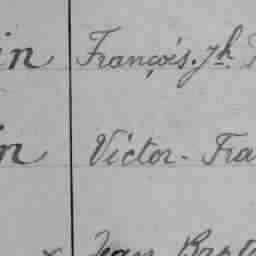 in François. Jh.
in Victor - Fra
Jean Bapt